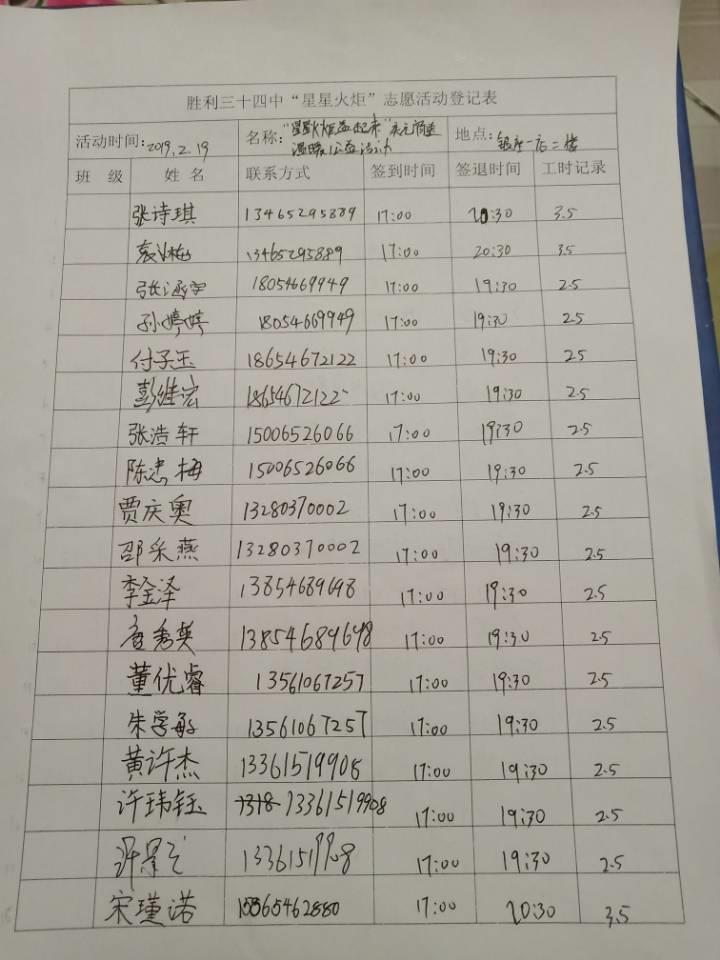 胜利三十四中“星星火炬”志愿活动登记表
活动时间:2019.2.19 名称:“星星火炬益起来”元宵送温暖公益活动 地点:银座一店二楼
班 级 姓 名 联系方式 签到时间 签退时间 工时记录
张诗琪 13465295889 17:00 20:30 3.5
袁 梅 13465295889 17:00 20:30 3.5
张涵 18054669949 17:00 19:30 2.5
孙婷婷 18054669949 17:00 19:30 2.5
付子玉 18654672122 17:00 19:30 2.5
彭维宏 18654672122 17:00 19:30 2.5
张浩轩 15006526066 17:00 19:30 2.5
陈忠梅 15006526066 17:00 19:30 2.5
贾庆奥 13280370002 17:00 19:30 2.5
邵采燕 13280370002 17:00 19:30 2.5
李金泽 13854689698 17:00 19:30 2.5
秀英 13854689698 17:00 19:30 2.5
董优睿 13561067257 17:00 19:30 2.5
朱学敏 13561067257 17:00 19:30 2.5
黄许杰 13361519908 17:00 19:30 2.5
许玮钰 1318 13361519908 17:00 19:30 2.5
许 13361519908 17:00 19:30 2.5
宋瑾诺 15365462880 17:00 20:30 3.5